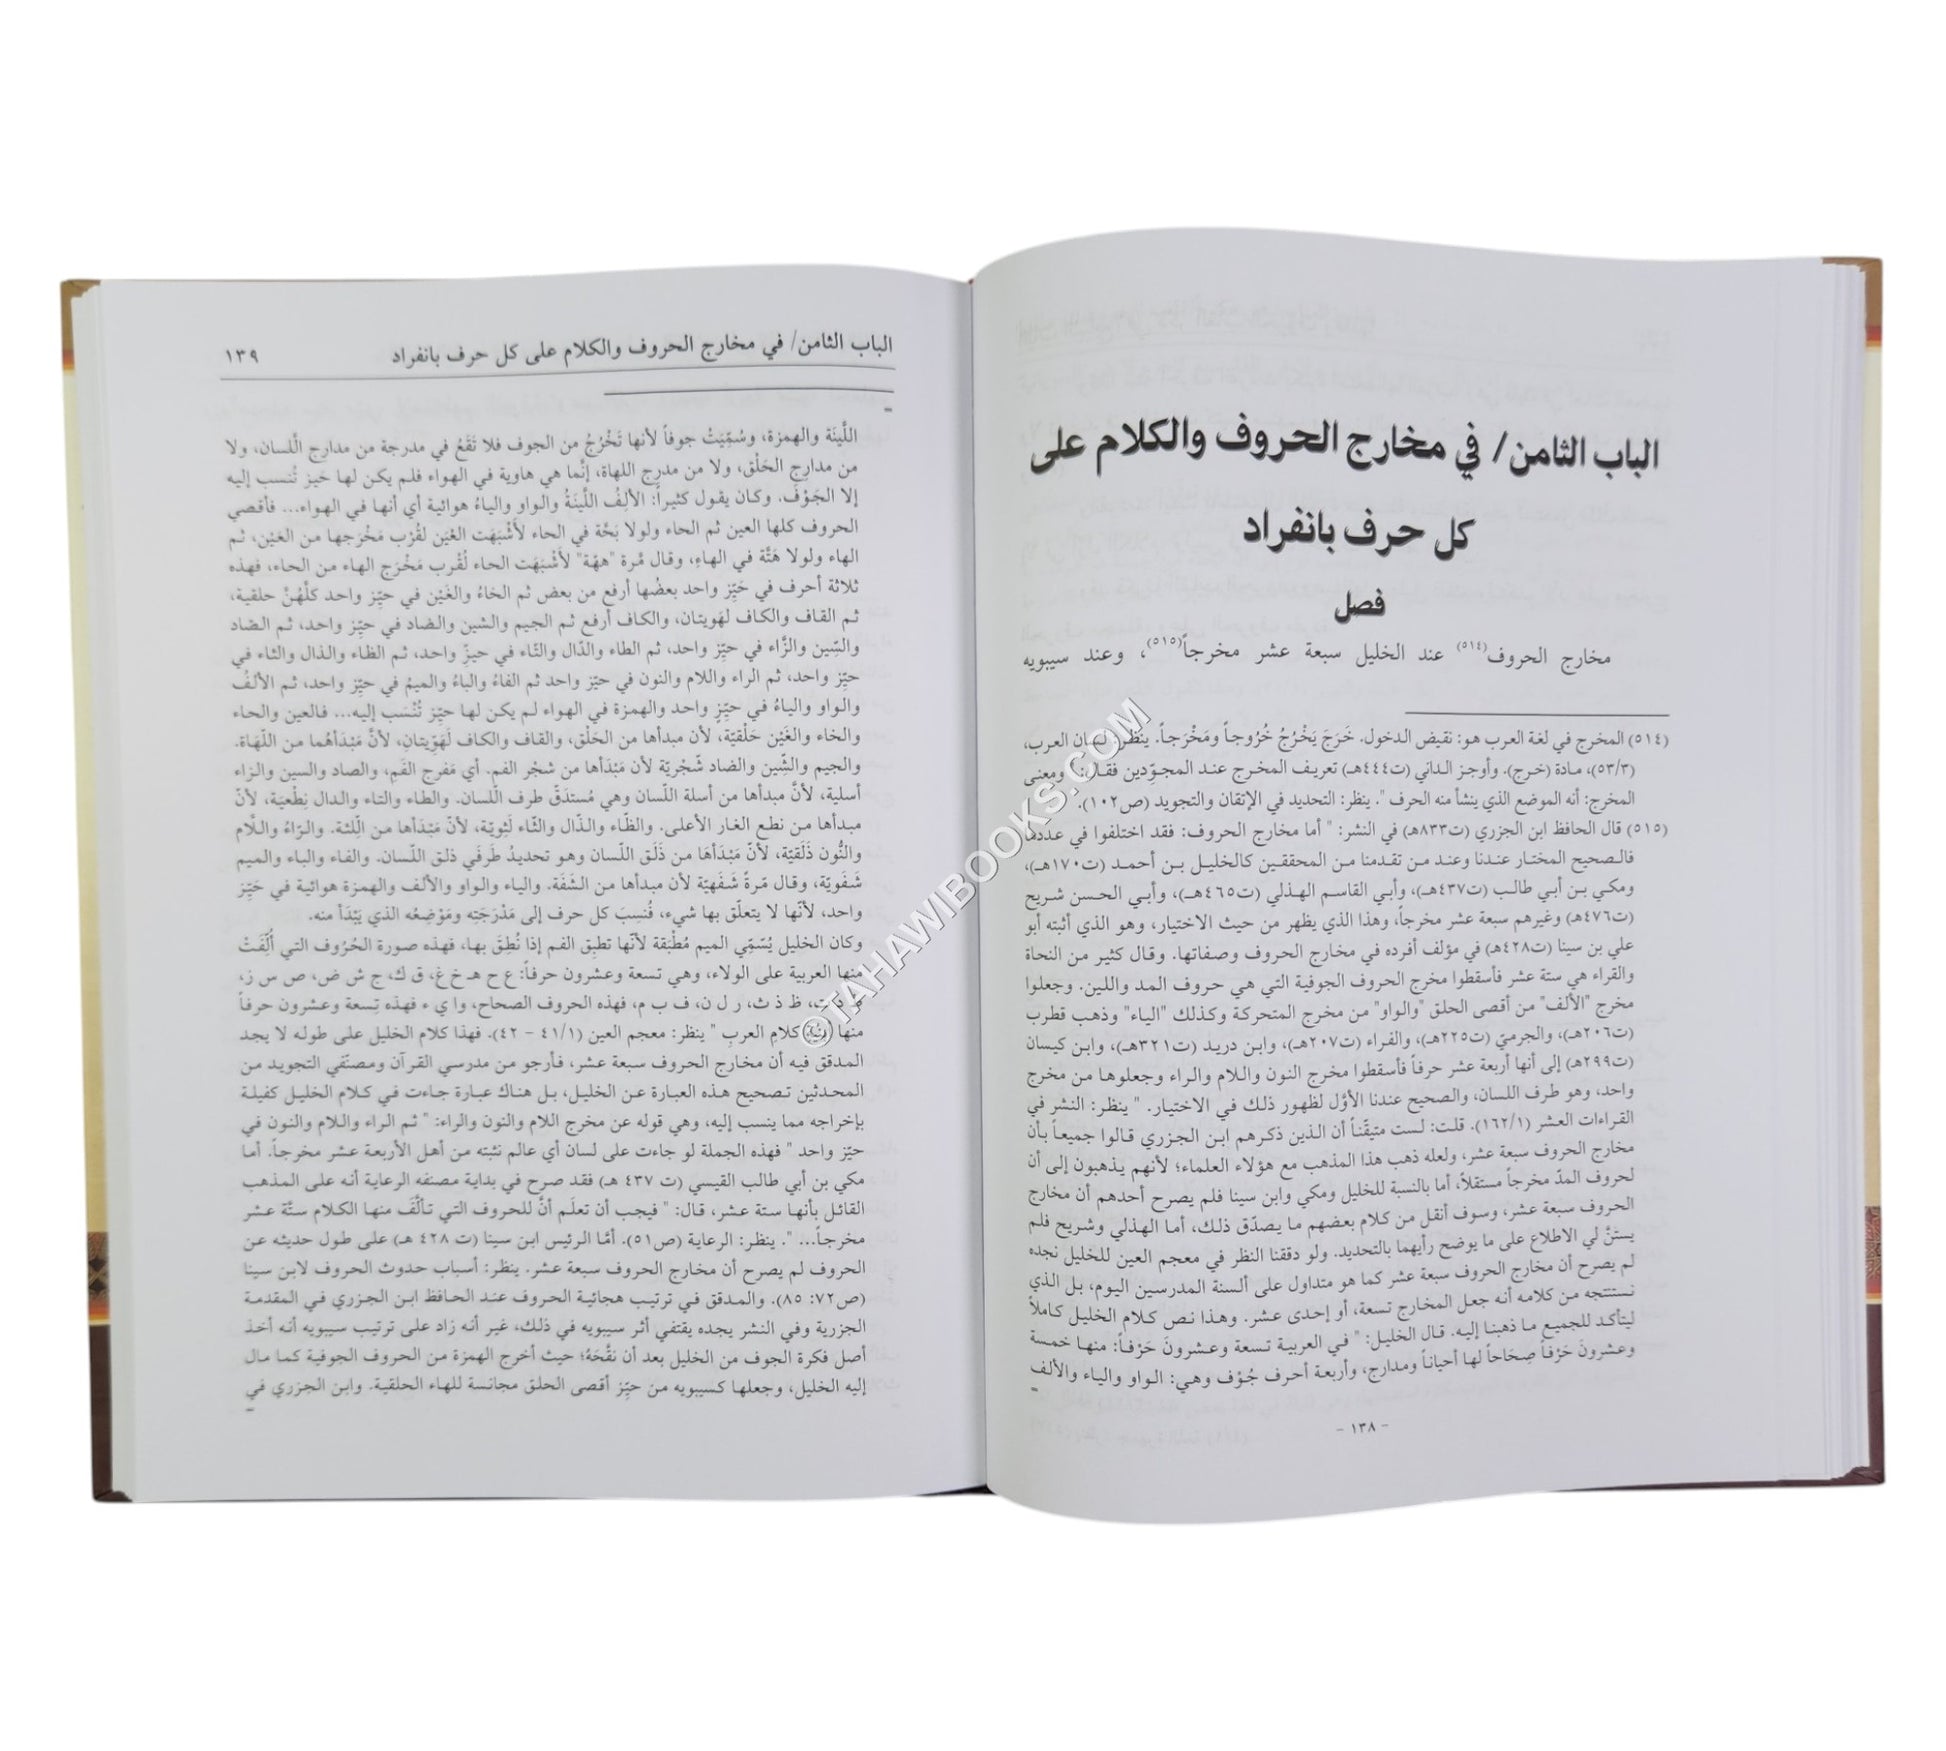 الباب الثامن/ في مخارج الحروف والكلام على
كل حرف بانفراد
فصل
مخارج الحروف(٥١٤) عند الخليل سبعة عشر مخرجاً(٥١٥)، وعند سيبويه
(٥١٤) المخرج في لغة العرب هو: نقيض الدخول. خَرَجَ يَخْرُجُ خُرُوجاً ومَخْرَجاً. ينظر: لسان العرب،
(٥٣/٣)، مادة (خرج). وأوجز الداني (ت٤٤٤هـ) تعريف المخرج عند المجوّدين فقال: ومعنى
المخرج: أنه الموضع الذي ينشأ منه الحرف ". ينظر: التحديد في الإتقان والتجويد (ص١٠٢).
(٥١٥) قال الحافظ ابن الجزري (ت٨٣٣هـ) في النشر: " أما مخارج الحروف: فقد اختلفوا في عددها
فالصحيح المختار عندنا وعند من تقدمنا من المحققين كالخليل بن أحمد (ت١٧٠هـ)،
ومكي بن أبي طالب (ت٤٣٧هـ)، وأبي القاسم الهذلي (ت٤٦٥هـ)، وأبي الحسن شريح
(ت٤٧٦هـ) وغيرهم سبعة عشر مخرجاً، وهذا الذي يظهر من حيث الاختيار، وهو الذي أثبته أبو
علي بن سينا (ت٤٢٨هـ) في مؤلف أفرده في مخارج الحروف وصفاتها. وقال كثير من النحاة
والقراء هي ستة عشر فأسقطوا مخرج الحروف الجوفية التي هي حروف المد واللين. وجعلوا
مخرج "الألف" من أقصى الحلق "والواو" من مخرج المتحركة وكذلك "الياء" وذهب قطرب
(ت٢٠٦هـ)، والجرميّ (ت٢٢٥هـ)، والفراء (ت٢٠٧هـ)، وابن دريد (ت٣٢١هـ)، وابن كيسان
(ت٢٩٩هـ) إلى أنها أربعة عشر حرفاً فأسقطوا مخرج النون واللام والراء وجعلوها من مخرج
واحد، وهو طرف اللسان، والصحيح عندنا الأوّل لظهور ذلك في الاختيار. " ينظر: النشر في
القراءات العشر (١٦٢/١). قلت: لست متيقّناً أن الذين ذكرهم ابن الجزري قالوا جميعاً بأن
مخارج الحروف سبعة عشر، ولعله ذهب هذا المذهب مع هؤلاء العلماء؛ لأنهم يذهبون إلى أن
لحروف المدّ مخرجاً مستقلاً، أما بالنسبة للخليل ومكي وابن سينا فلم يصرح أحدهم أن مخارج
الحروف سبعة عشر، وسوف أنقل من كلام بعضهم ما يصدّق ذلك، أما الهذلي وشريح فلم
يستنّ لي الاطلاع على ما يوضح رأيهما بالتحديد. ولو دققنا النظر في معجم العين للخليل نجده
لم يصرح أن مخارج الحروف سبعة عشر كما هو متداول على ألسنة المدرسين اليوم، بل الذي
نستنتجه من كلامه أنه جعل المخارج تسعة، أو إحدى عشر. وهذا نص كلام الخليل كاملاً
ليتأكد للجميع ما ذهبنا إليه. قال الخليل: " في العربية تسعة وعشرونَ حَرْفاً: منها خمسة
وعشرونَ حَرْفاً صِحَاحاً لها أحياناً ومدارج، وأربعة أحرف جُوْف وهي: الواو والياء والألف
- ١٣٨ -
الباب الثامن/ في مخارج الحروف والكلام على كل حرف بانفراد ١٣٩
اللَّينَة والهمزة، وسُمِّيَتْ جوفاً لأنها تَخْرُجُ من الجوف فلا تَقَعُ في مدرجة من مدارِج الّلسان، ولا
من مدارِج الحَلْق، ولا من مدرِج اللهاة، إنَّما هي هاوية في الهواء فلم يكن لها حَيز تُنسب إليه
إلا الجَوْفَ. وكان يقول كثيراً: الألِفُ اللَّينَةُ والواو والياءُ هوائية أي أنها في الهواء... فأقصي
الحروف كلها العين ثم الحاء ولولا بَحَّة في الحاء لأَشْبَهَت العْيَن لقُرْب مَخْرَجها من العَيْن، ثم
الهاء ولولا هَتَّة في الهاءِ، وقال مَّرة "ههّة" لأَشْبَهَت الحاء لقُرْب مَخْرَج الهاء من الحاء، فهذه
ثلاثة أحرف في حَيِّز واحد بعضُها أرفع من بعض ثم الخاءُ والغَيْن في حيِّز واحد كلّهُنَّ حلقية،
ثم القاف والكاف لهَويتان، والكاف أرفع ثم الجيم والشين والضاد في حيِّز واحد، ثم الصاد
والسِّين والزَّاء في حيِّز واحد، ثم الطاء والدّال والتّاء في حيزّ واحد، ثم الظاء والذال والثاء في
حيِّز واحد، ثم الراء واللام والنون في حيّز واحد ثم الفاءُ والباءُ والميمُ في حيّز واحد، ثم الألفُ
والواو والياءُ في حيِّزٍ واحد والهمزة في الهواء لم يكن لها حيِّز تُنْسَب إليه... فالعين والحاء
والخاء والغَيْن حَلْقيّة، لأن مبدأها من الحَلْق، والقاف والكاف لَهَوِيتانِ، لأنَّ مَبْدَأهُما من اللّهَاة.
والجيم والشِّين والضاد شَجْريّة لأن مَبْدَأها من شجْر الفم. أي مَفرج الفَمِ، والصاد والسين والزاء
أسلية، لأنَّ مبدأها من أسلة اللّسان وهي مُستدَقّ طرف اللّسان. والطاء والتاء والدال نِطْعيّة، لأنّ
مبدأها من نطع الغار الأعلى. والظّاء والذّال والثّاء لَثِويّة، لأنّ مَبْدَأها من اللِّثة. والرّاءُ واللَّام
والنُّون ذَلَقيّة، لأنّ مَبْدَأهَا من ذَلَق اللّسان وهو تحديدُ طَرَفَي ذلق اللسان. والفاء والباء والميم
شَفَويّة، وقال مّرةً شَفَهيّة لأن مبدأها من الشَفَة. والياء والواو والألف والهمزة هوائية في حَيِّز
واحد، لأنّها لا يتعلّق بها شيء، فُنسِبَ كل حرف إلى مَدْرَجَتِه ومَوْضِعُه الذي يَبْدَأ منه.
وكان الخليل يُسْمِّي الميم مُطْبَقة لأنّها تطبِق الفم إذا نُطِقَ بها، فهذه صورة الحُرُوف التي أُلِّفَتْ
منها العربية على الولاء، وهي تسعة وعشرون حرفاً: ع ح هـ خ غ، ق ك، ج ش ض، ص س ز،
ط د ت، ظ ذ ث، ر ل ن، ف ب م، فهذه الحروف الصحاح، وا ي ء فهذه تِسعة وعشرون حرفاً
منها كلامِ العربِ " ينظر: معجم العين (٤١/١ – ٤٢). فهذا كلام الخليل على طوله لا يجد
المدقق فيه أن مخارج الحروف سبعة عشر، فأرجو من مدرسي القرآن ومصنّفي التجويد من
المحدثين تصحيح هذه العبارة عن الخليل، بل هناك عبارة جاءت في كلام الخليل كفيلة
بإخراجه مما ينسب إليه، وهي قوله عن مخرج اللام والنون والراء: " ثم الراء واللام والنون في
حيّز واحد " فهذه الجملة لو جاءت على لسان أي عالم نثبته من أهل الأربعة عشر مخرجاً. أما
مكي بن أبي طالب القيسي (ت ٤٣٧ هـ) فقد صرح في بداية مصنفه الرعاية أنه على المذهب
القائل بأنها ستة عشر، قال: " فيجب أن تعلَم أنَّ للحروف التي تـألّفَ منها الكلام ستَّة عشر
مخرجاً... ". ينظر: الرعاية (ص٥١). أمّا الرئيس ابن سينا (ت ٤٢٨ هـ) على طول حديثه عن
الحروف لم يصرح أن مخارج الحروف سبعة عشر. ينظر: أسباب حدوث الحروف لابن سينا
(ص٧٢: ٨٥). والمدقق في ترتيب هجائية الحروف عند الحافظ ابن الجزري في المقدمة
الجزرية وفي النشر يجده يقتفي أثر سيبويه في ذلك، غير أنه زاد على ترتيب سيبويه أنه أخذ
أصل فكرة الجوف من الخليل بعد أن نَقَّحَهُ؛ حيث أخرج الهمزة من الحروف الجوفية كما مال
إليه الخليل، وجعلها كسيبويه من حيِّز أقصى الحلق مجانسة للهاء الحلقية. وابن الجزري في
©TAHAWIBOOKS.COM